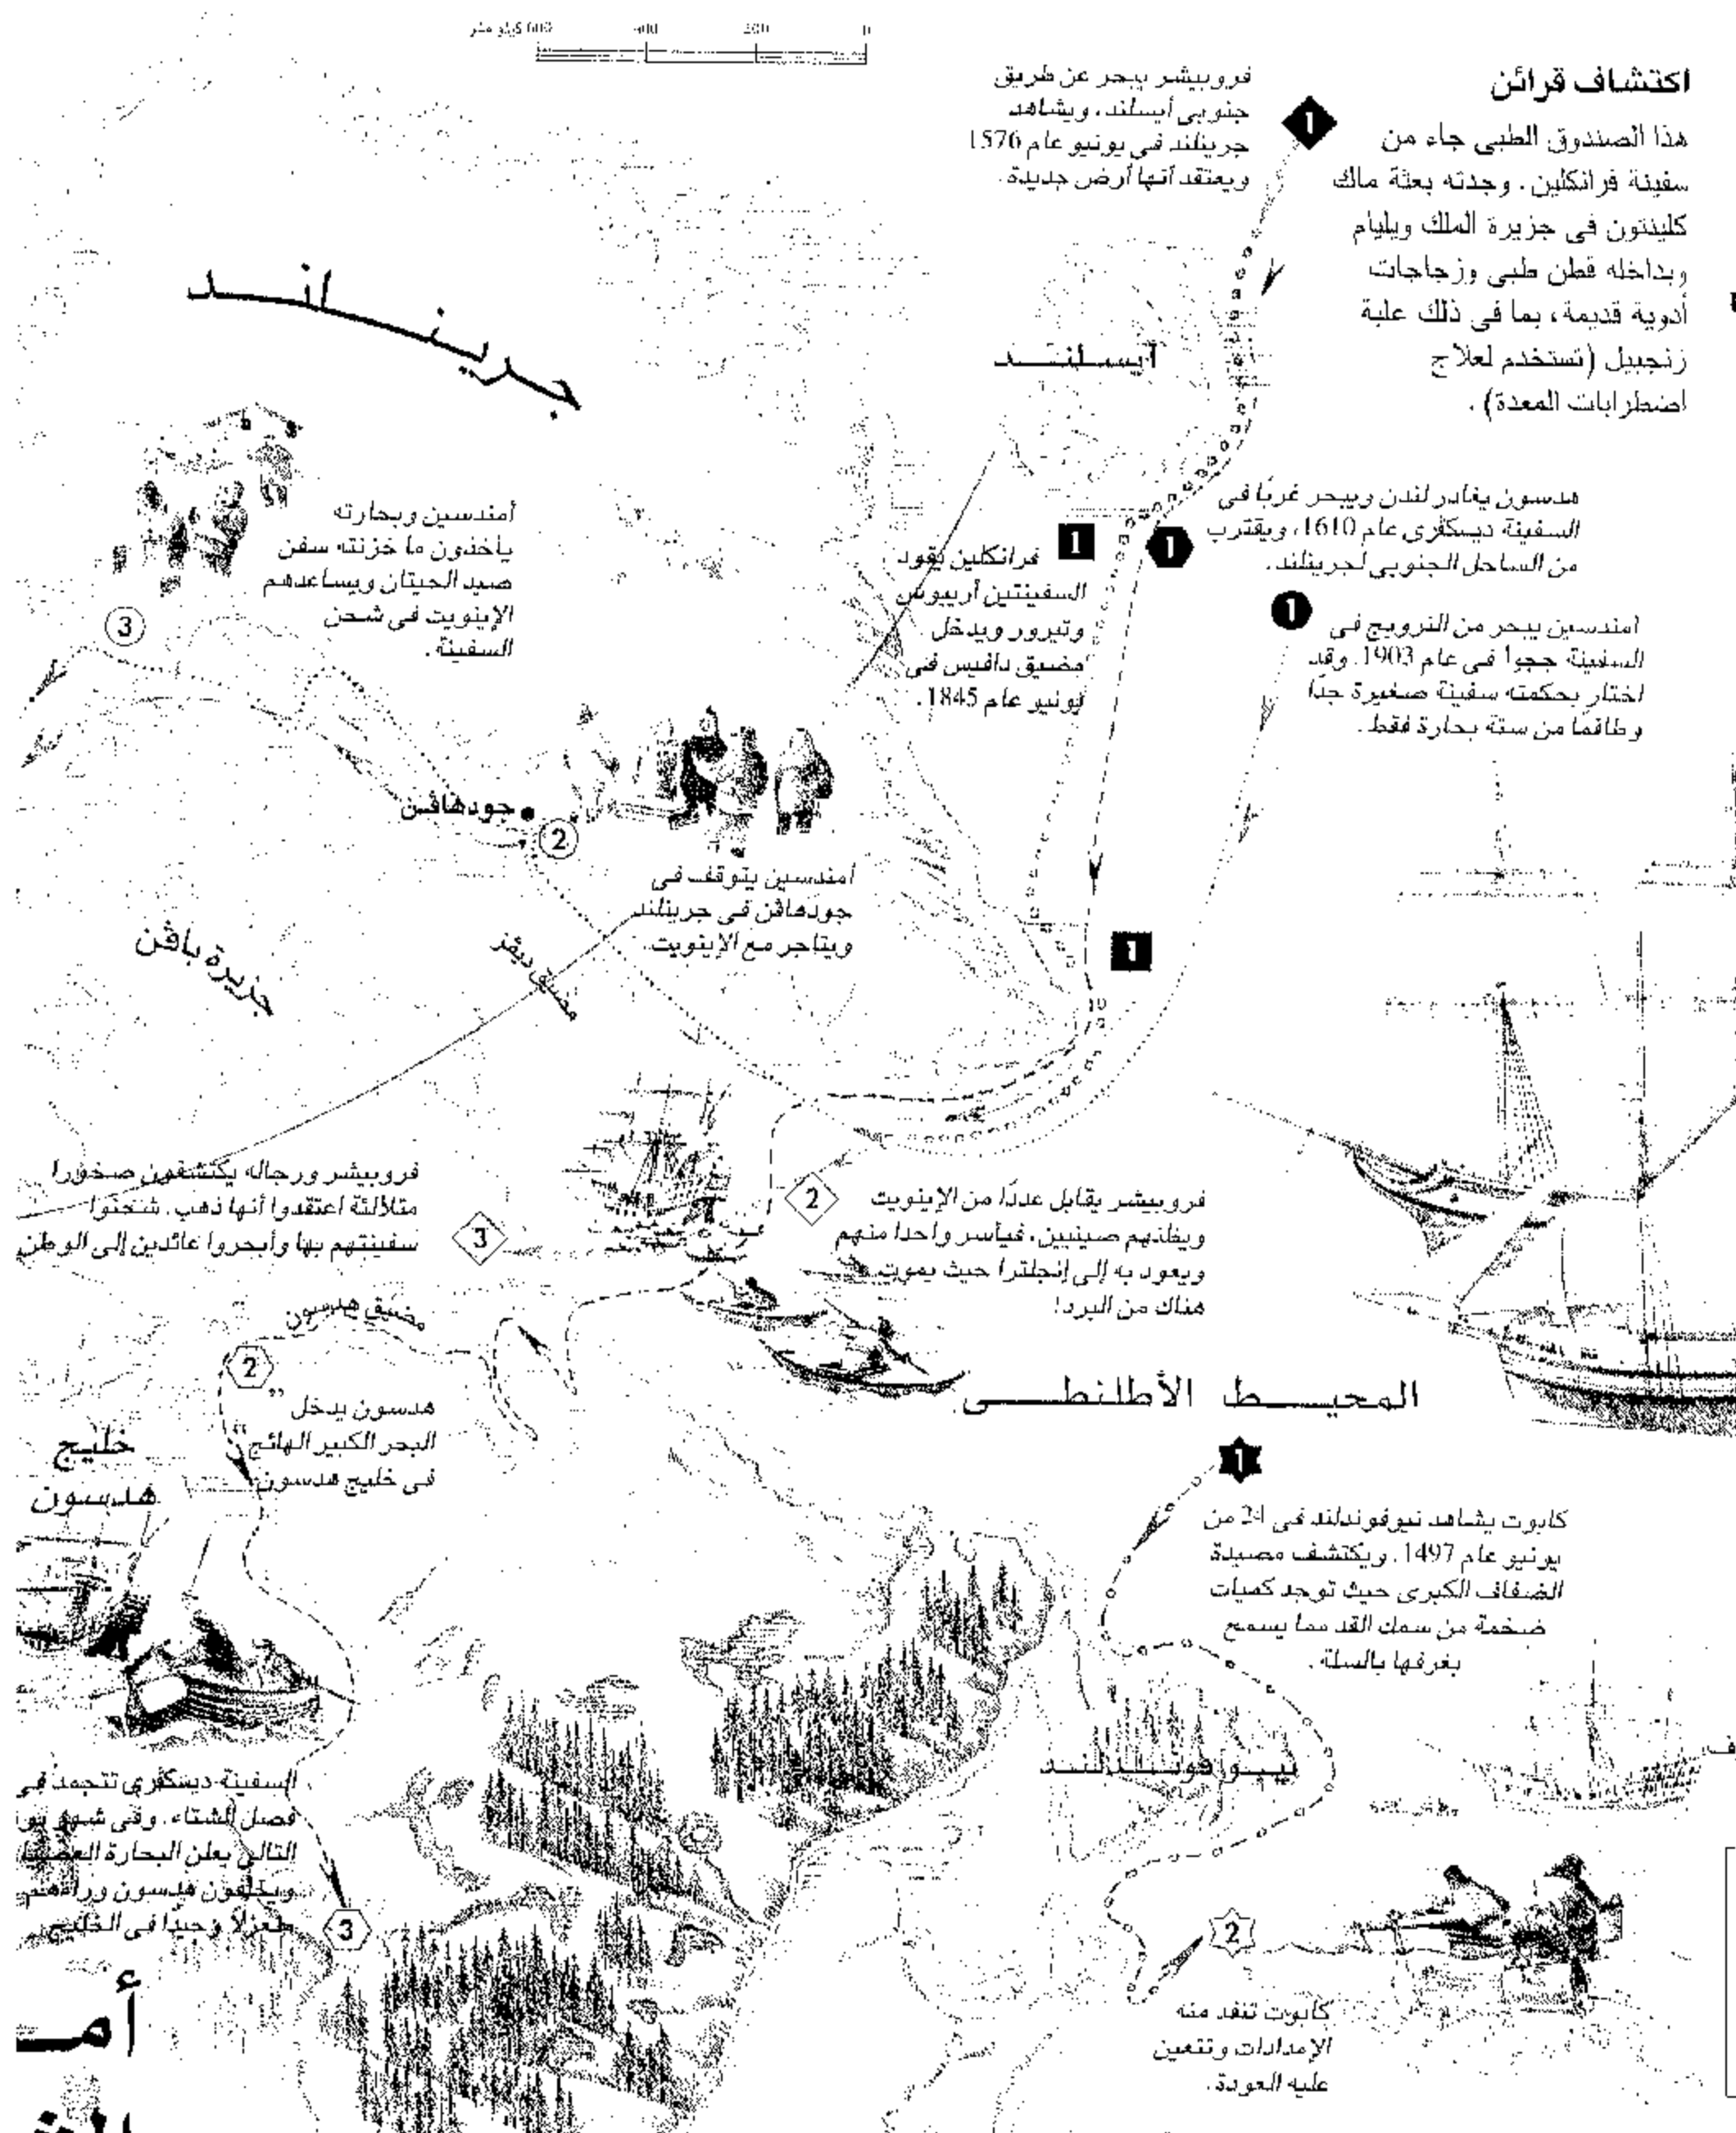 600 كيلو متر 400 200 0
اكتشاف قرائن
هذا الصندوق الطبى جاء من
سفينة فرانكلين. وجدته بعثة ماك
كلينتون فى جزيرة الملك ويليام
وبداخله قطن طبى وزجاجات
أدوية قديمة، بما فى ذلك علبة
زنجبيل (تستخدم لعلاج
اضطرابات المعدة).
1
فروبيشر يبحر عن طريق
جنوبى أيسلند، ويشاهد
جرينلند فى يونيو عام 1576
ويعتقد أنها أرض جديدة.
جرينلند
أيسلند
1
هدسون يغادر لندن ويبحر غربًا فى
السفينة ديسكڤرى عام 1610، ويقترب
من الساحل الجنوبى لجرينلند.
1
فرانكلين يقود
السفينتين أريبوس
وتيرور ويدخل
مضيق دافيس فى
يونيو عام 1845.
1
أمندسين يبحر من النرويج فى
السفينة ججوا فى عام 1903. وقد
اختار بحكمته سفينة صغيرة جدًا
وطاقمًا من ستة بحارة فقط.
أمندسين وبحارته
يأخذون ما خزنته سفن
صيد الحيتان ويساعدهم
الإينويت فى شحن
السفينة.
3
جودهاڤن
2
أمندسين يتوقف فى
جودهاڤن فى جرينلند
ويتاجر مع الإينويت.
1
جزيرة باڤن
مضيق ديڤز
فروبيشر ورجاله يكتشفون صخورا
متلألئة اعتقدوا أنها ذهب. شحنوا
سفينتهم بها وأبحروا عائدين إلى الوطن
3
2
فروبيشر يقابل عددًا من الإينويت
ويظنهم صينيين، فيأسر واحدا منهم
ويعود به إلى إنجلترا حيث يموت
هناك من البرد!
مضيق هدسون
2
هدسون يدخل "
البحر الكبير الهائج"
فى خليج هدسون
خليج
هدسون
المحيط الأطلنطى
1
كابوت يشاهد نيوفوندلند فى 24 من
يونيو عام 1497. ويكتشف مصيدة
الضفاف الكبرى حيث توجد كميات
ضخمة من سمك القد مما يسمح
بغرفها بالسلة.
نيوفوندلند
السفينة ديسكڤرى تتجمد فى
فصل الشتاء. وفى شهر
التالى يعلن البحارة
ويخلفون هدسون وراءهم
وحيدًا فى الخليج
3
2
كابوت تنفد منه
الإمدادات وتتعين
عليه العودة.
أمـ